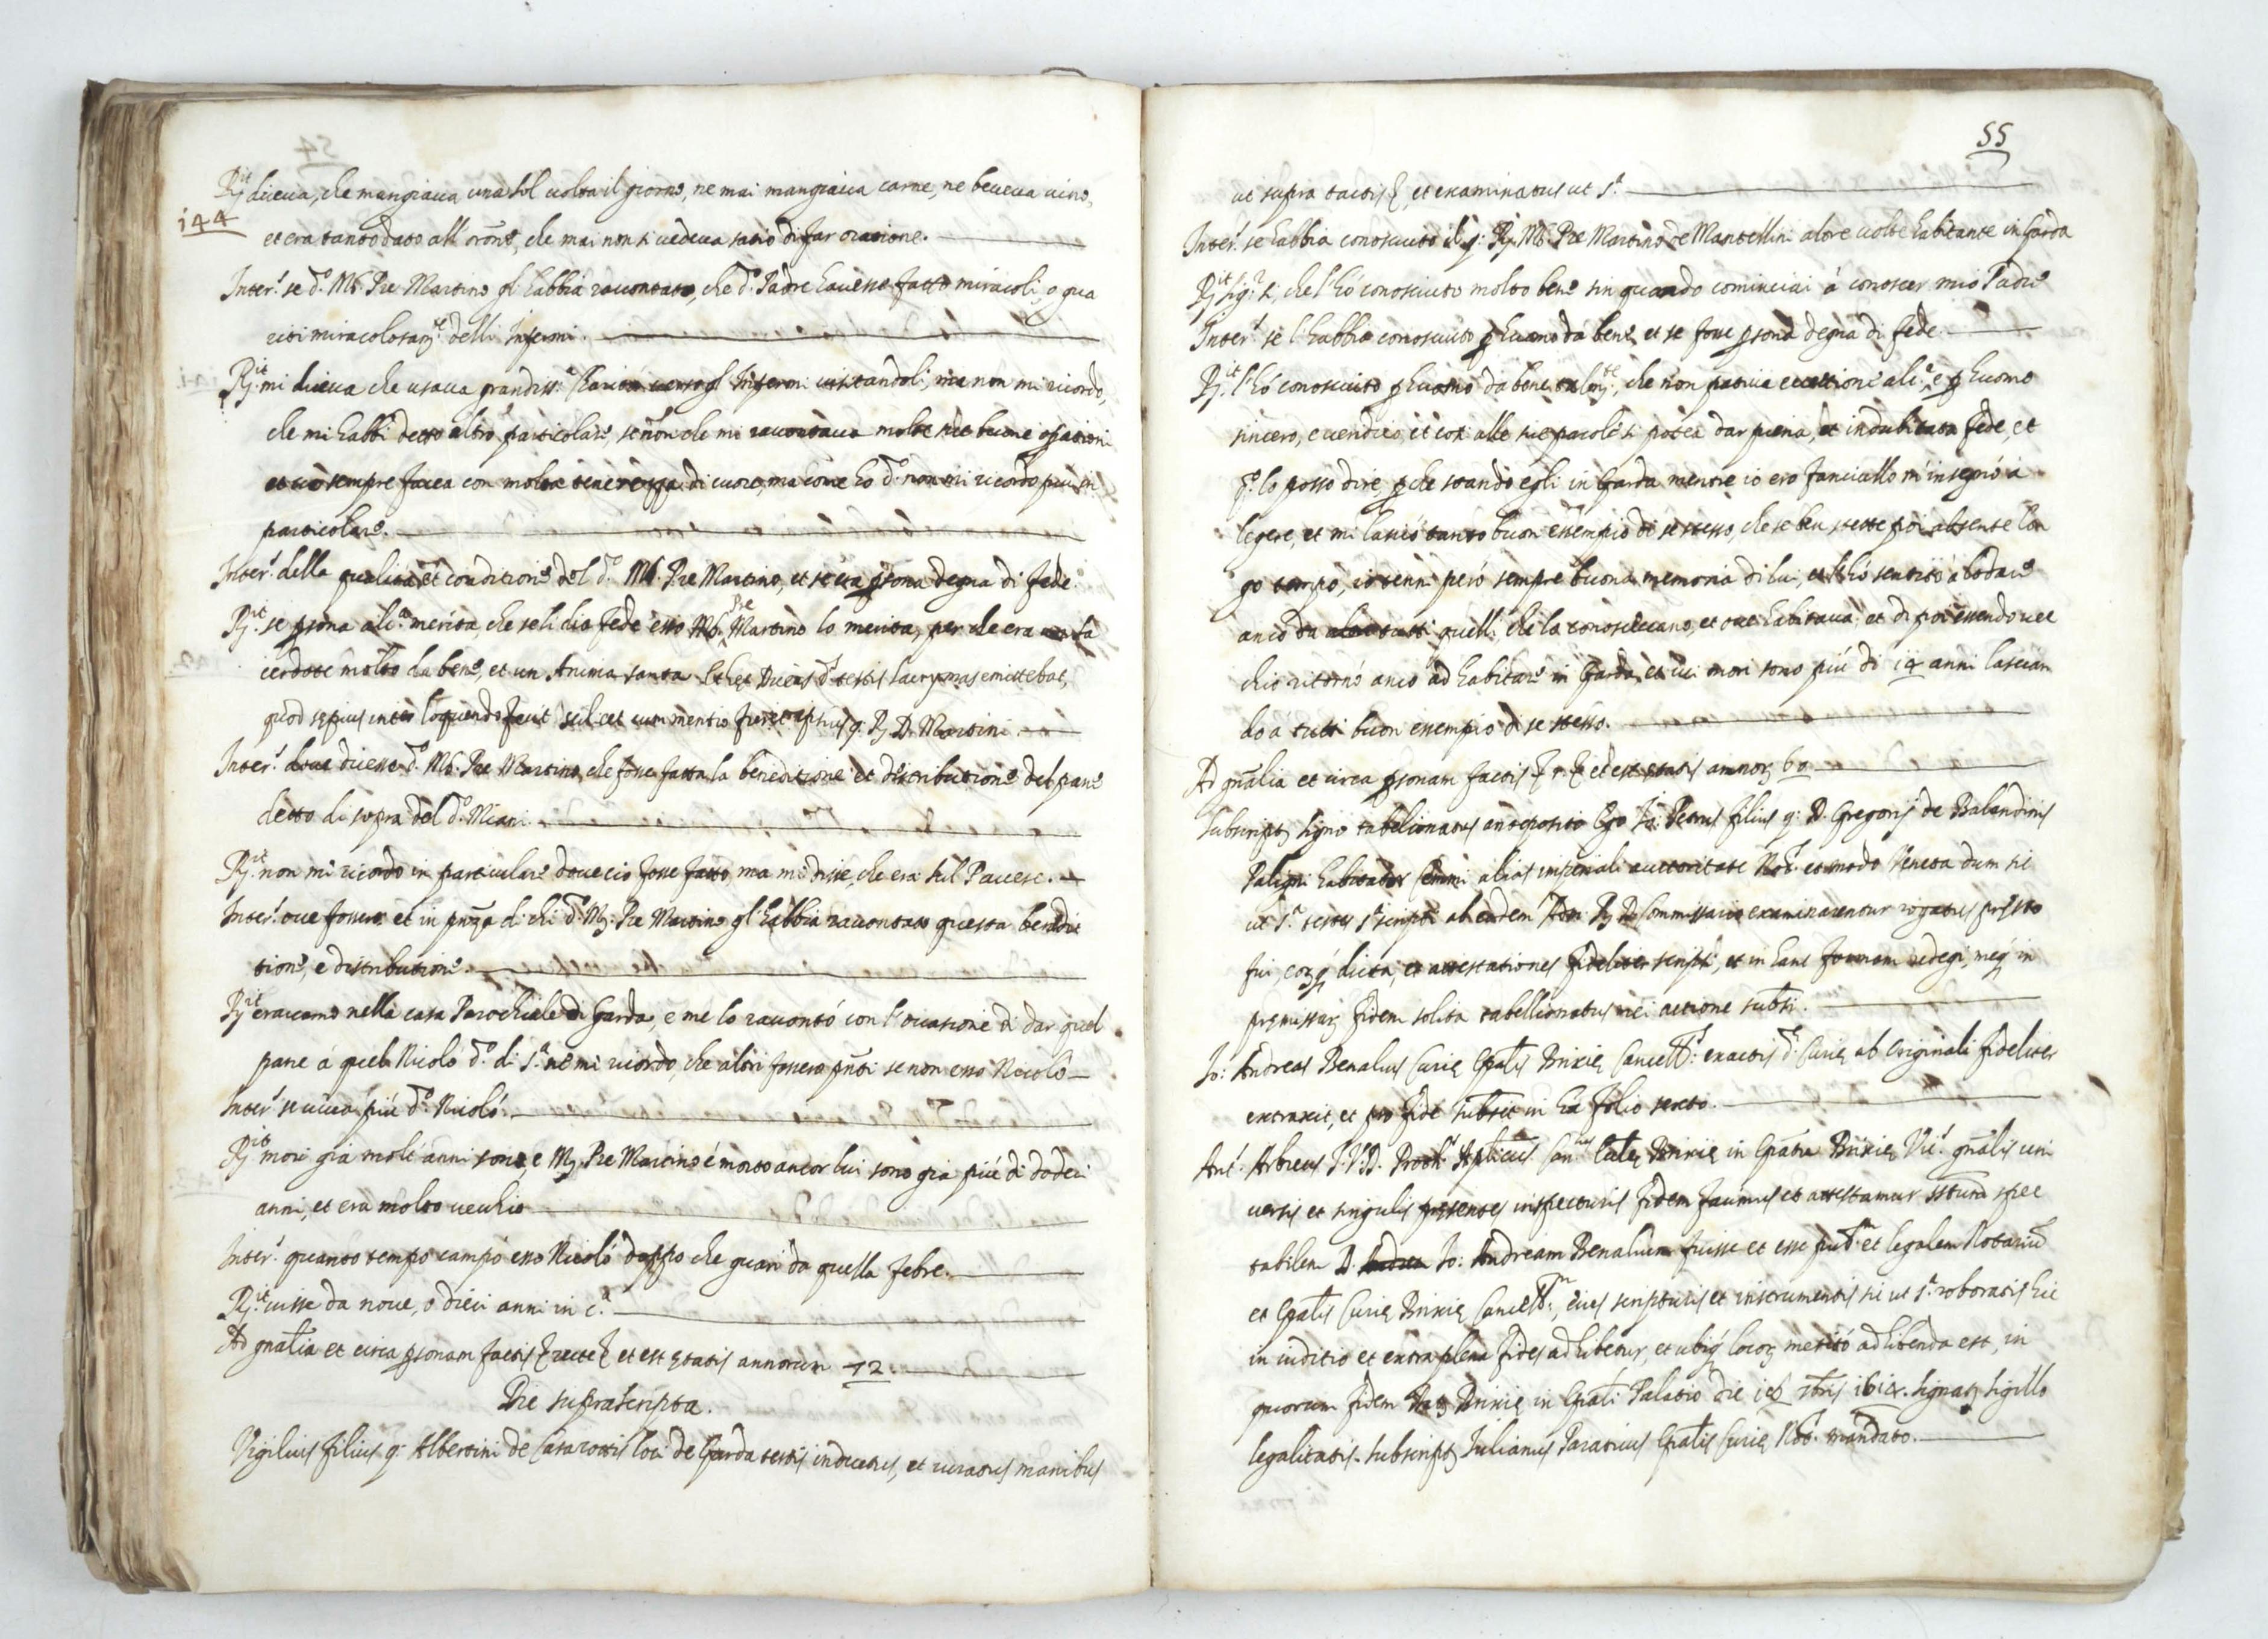 R.it diceua, che mangiaua una sol uolta il giorno, ne mai mangiaua carne, ne beueua uino,
144
et era tanto dato all' oron.e, che mai non si uedeua satio di far oratione.
Inter.s se d.o M.r Pre Martino gl' habbia raccontato, che d.o Padre hauesse fatto miracoli, o gua
riti miracolosam.te delli Infermi.
R.it mi diceua che usaua grandiss.a Charità uerso gl' Infermi uisitandoli, ma non mi ricordo,
che mi habbi detto altro particolare, se non che mi raccontaua molte sue buone operationi
et ciò sempre facea con molta tenerezza di cuore, ma come ho d.o non mi ricordo più in
particolare.
Inter.s della qualità et conditione del d.o M.r Pre Martino, et se era psona degna di fede.
R.it se psona alc.a merita, che seli dia fede esso M.r Pre Martino lo merita, per che era sa
cerdote molto da bene, et un Anima santa. Et hęc Dicens d.s testis lacrymas emittebat,
quod sępius inter loquendo fecit scilicet cum mentio fieret ipsius q. R. D. Martini
Inter.s doue dicesse d.o M.r Pre Martino, che fosse fatta la beneditione et distributione del pane
detto di sopra del d.o Miani.
R.it non mi ricordo in particulare doue ciò fosse fatto, ma mi disse, che era sul Pauese.
Inter.s oue fossero et in pnza di chi d.o M.r Pre Martino gl' habbia raccontato questa beneditt
tione, e distributione.
R.it erauamo nella casa Parochiale di Garda, e me lo raccontò con l' occasione di dar quel
pane à quel Nicolò d.o di s.a nè mi ricordo, che altri fossero pnti se non esso Nicolò
Inter.s se uiua più d.o Nicolò.
R.it morì già molti anni sono, e M.r Pre Martino è morto ancor lui sono già più di dodeci
anni, et era molto uechio
Inter.s quanto tempo campò esso Nicolò doppo che guarì da quella febre.
R.it uisse da noue, o dieci anni in c.a
Ad gnalia et circa psonam factis recte et est ętatis annorum 72.
Die suprascripta.
Vigilius filius q. Albertini de Casarottis loci de Garda testis inductus, et iuratus manibus
55
ut supra tactis, et examinatus ut s.a
Inter.s se habbia conosciuto il q. R. M.r Pre Martino de Mantellini altre uolte habitante in Garda
R.it sig.r si, che l' hò conosciuto molto bene sin quando cominciai à conoscer mio Padre
Inter.s se l' habbia conosciuto p huomo da bene, et se fosse psona degna di fede
R.it l' hò conosciuto p huomo da bene talm.te, che non patiua eccettione alc.a, e p huomo
sincero, e ueridico, et così alle sue parole si potea dar piena, et indubitata fede, et
q.o lo posso dire, p che stando egli in Garda mentre io ero fanciullo m' insegnò à
legere, et mi lasciò tanto buon essempio di se stesso, che se ben stette poi absente lon
go tempo, io tenni però sempre buona memoria di lui, et l' hò sentito à lodare
anco da tutti quelli che lo conosceuano, et oue habitaua, et di poi essendo uec
chio ritornò anco ad habitare in Garda, et iui morì sono più di 14 anni lascian
do à tutti buon essempio di se stesso.
Ad gnalia et circa psonam factis et est ętatis annor. 60
Subscript. signo tabelionatus anteposito Ego Jo: Petrus filius q. D. Gregorij de Balandinis
habitator alias imperiali auctoritate Not. et modo Veneta dum sic
ut s.a testes s.a scripti ab eodem R. D. Commissario examinarentur rogatus presto
fui, eorq. dicta, et attestationes fideliter scripsi, et in hanc formam redegi, meq. in
premissor. fidem solita tabellionatus mei actione subsi.
Jo: Andreas Benalius Curię Epalis Brixię Cancell.s exactis d. Curię ab originali fideliter
extraxit, et pro fide subsit in hoc folio sexto.
Ant. Arbreus J.V.D. Proth. Aplicus Can.cus Cat.lis Brixię in Epatu Brixię Vic. gnalis uni
uersis et singulis presentes inspecturis fidem facimus et attestamur sstum spec
tabilem D. Jo: Andream Benalium fuisse et esse pub.m et legalem Notarium
et Epalis Curię Brixię Cancell.m, eius scripturis et instrumentis sic ut s.a roboratis hic
in iuditio et extra plena fides adhibetur, et ubiq. locor. meritò adhibenda est, in
quorum fidem Dat. Brixię in Epali Palatio die 16 1614. signat. sigillo
legalitatis. Subscript. Julianus Paratius Epalis Curię Not. mandato.